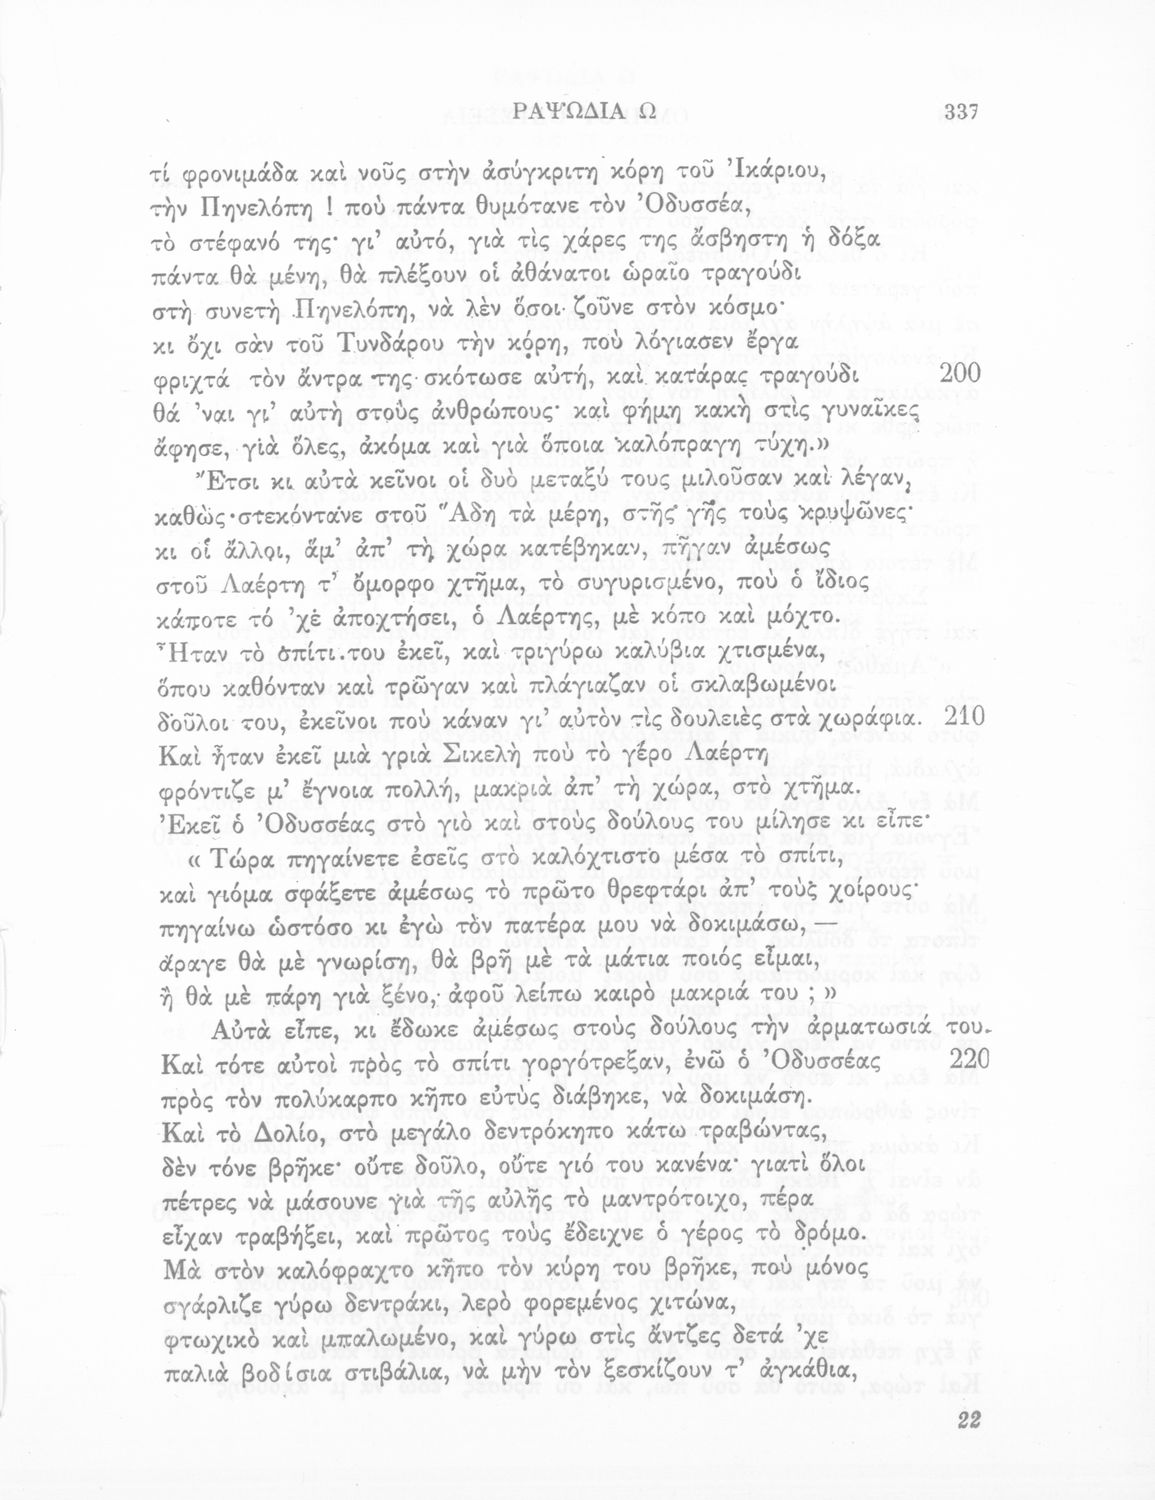 ΡΑΨΩΔΙΑ Ω 337
τί φρονιμάδα καὶ νοῦς στὴν ἀσύγκριτη κόρη τοῦ Ἰκάριου,
τὴν Πηνελόπη ! ποὺ πάντα θυμότανε τὸν Ὀδυσσέα,
τὸ στέφανό της· γι’ αὐτό, γιὰ τὶς χάρες της ἄσβηστη ἡ δόξα
πάντα θὰ μένῃ, θὰ πλέξουν οἱ ἀθάνατοι ὡραῖο τραγούδι
στὴ συνετὴ Πηνελόπη, νὰ λὲν ὅσοι ζοῦνε στὸν κόσμο·
κι ὄχι σὰν τοῦ Τυνδάρου τὴν κόρη, ποὺ λόγιασεν ἔργα
φριχτά τὸν ἄντρα της σκότωσε αὐτή, καὶ κατάρας τραγούδι 200
θά ’ναι γι’ αὐτὴ στοὺς ἀνθρώπους· καὶ φήμη κακὴ στὶς γυναῖκες
ἄφησε, γιὰ ὅλες, ἀκόμα καὶ γιὰ ὅποια καλόπραγη τύχη.»
Ἔτσι κι αὐτὰ κεῖνοι οἱ δυὸ μεταξύ τους μιλοῦσαν καὶ λέγαν,
καθὼς στεκόντανε στοῦ Ἅδη τὰ μέρη, στῆς γῆς τοὺς κρυψῶνες·
κι οἱ ἄλλοι, ἅμ’ ἀπ’ τὴ χώρα κατέβηκαν, πῆγαν ἀμέσως
στοῦ Λαέρτη τ’ ὄμορφο χτῆμα, τὸ συγυρισμένο, ποὺ ὁ ἴδιος
κάποτε τό ’χὲ ἀποχτήσει, ὁ Λαέρτης, μὲ κόπο καὶ μόχτο.
Ἦταν τὸ σπίτι του ἐκεῖ, καὶ τριγύρω καλύβια χτισμένα,
ὅπου καθόνταν καὶ τρῶγαν καὶ πλάγιαζαν οἱ σκλαβωμένοι
δοῦλοι του, ἐκεῖνοι ποὺ κάναν γι’ αὐτὸν τὶς δουλειὲς στὰ χωράφια. 210
Καὶ ἦταν ἐκεῖ μιὰ γριὰ Σικελὴ ποὺ τὸ γέρο Λαέρτη
φρόντιζε μ’ ἔγνοια πολλή, μακριὰ ἀπ’ τὴ χώρα, στὸ χτῆμα.
Ἐκεῖ ὁ Ὀδυσσέας στὸ γιὸ καὶ στοὺς δούλους του μίλησε κι εἶπε·
« Τώρα πηγαίνετε ἐσεῖς στὸ καλόχτιστο μέσα τὸ σπίτι,
καὶ γιόμα σφάξετε ἀμέσως τὸ πρῶτο θρεφτάρι ἀπ’ τοὺς χοίρους·
πηγαίνω ὡστόσο κι ἐγὼ τὸν πατέρα μου νὰ δοκιμάσω, —
ἄραγε θὰ μὲ γνωρίσῃ, θὰ βρῇ μὲ τὰ μάτια ποιός εἶμαι,
ἢ θὰ μὲ πάρῃ γιὰ ξένο, ἀφοῦ λείπω καιρὸ μακριά του ; »
Αὐτὰ εἶπε, κι ἔδωκε ἀμέσως στοὺς δούλους τὴν ἀρματωσιά του.
Καὶ τότε αὐτοὶ πρὸς τὸ σπίτι γοργότρεξαν, ἐνῶ ὁ Ὀδυσσέας 220
πρὸς τὸν πολύκαρπο κῆπο εὐτὺς διάβηκε, νὰ δοκιμάσῃ.
Καὶ τὸ Δολίο, στὸ μεγάλο δεντρόκηπο κάτω τραβώντας,
δὲν τόνε βρῆκε· οὔτε δοῦλο, οὔτε γιό του κανένα· γιατὶ ὅλοι
πέτρες νὰ μάσουνε γιὰ τῆς αὐλῆς τὸ μαντρότοιχο, πέρα
εἶχαν τραβήξει, καὶ πρῶτος τοὺς ἔδειχνε ὁ γέρος τὸ δρόμο.
Μὰ στὸν καλόφραχτο κῆπο τὸν κύρη του βρῆκε, ποὺ μόνος
σγάρλιζε γύρω δεντράκι, λερὸ φορεμένος χιτώνα,
φτωχικὸ καὶ μπαλωμένο, καὶ γύρω στὶς ἄντζες δετά ’χε
παλιὰ βοδίσια στιβάλια, νὰ μὴν τὸν ξεσκίζουν τ’ ἀγκάθια,
22